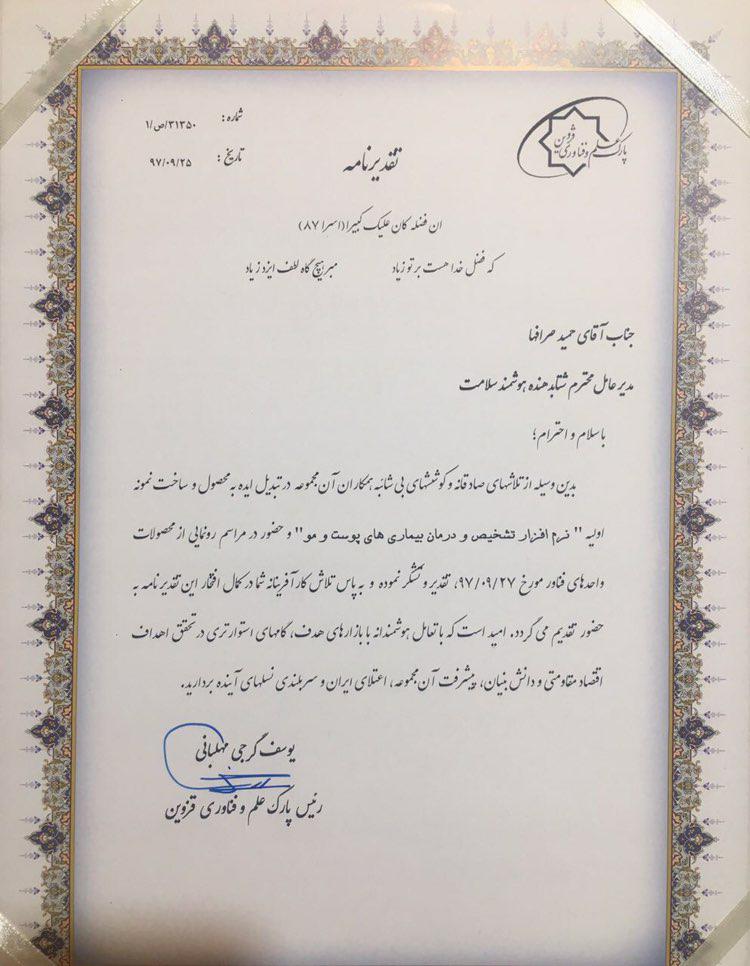 پارک علم و فناوری قزوین
شماره: ۳۱۳۵۰/ص/۱
تاریخ: ۹۷/۰۹/۲۵
تقدیرنامه
ان فضله کان علیک کبیرا (اسرا ۸۷)
که فضل خدا هست بر تو زیاد مبر هیچ گاه لطف ایزد ز یاد
جناب آقای حمید صرافها
مدیر عامل محترم شتابدهنده هوشمند سلامت
با سلام و احترام؛
بدین وسیله از تلاشهای صادقانه و کوششهای بی شائبه همکاران آن مجموعه در تبدیل ایده به محصول و ساخت نمونه
اولیه " نرم افزار تشخیص و درمان بیماری های پوست و مو" و حضور در مراسم رونمایی از محصولات
واحدهای فناور مورخ ۹۷/۰۹/۲۷، تقدیر و تشکر نموده و به پاس تلاش کارآفرینانه شما در کمال افتخار این تقدیرنامه به
حضور تقدیم می گردد. امید است که با تعامل هوشمندانه با بازارهای هدف، گامهای استوارتری در تحقق اهداف
اقتصاد مقاومتی و دانش بنیان، پیشرفت آن مجموعه، اعتلای ایران و سربلندی نسلهای آینده بردارید.
یوسف گرجی مهلبانی
رئیس پارک علم و فناوری قزوین